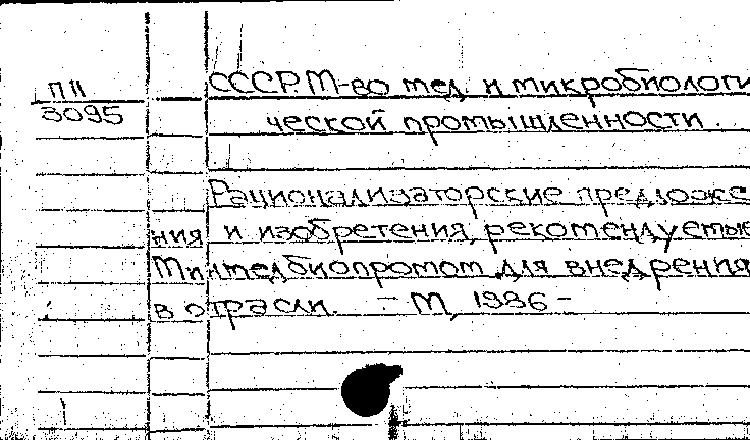 СССР. М-во мед. и микробиологи
ПII
3095
ческой промышленности.
Рационализаторские предложе
ния и изобретения, рекомендуемые
Минмедбиопромом для внедрения
в отрасли. – М, 1986 –